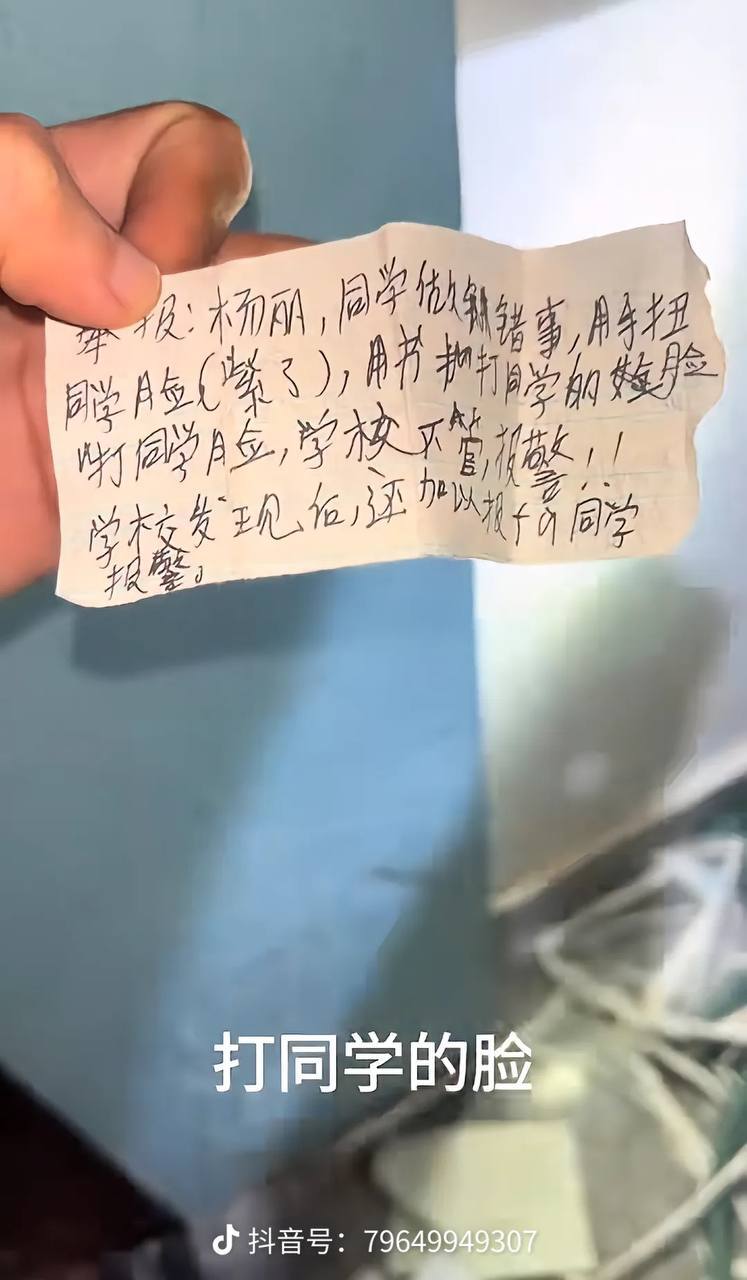 举报:杨丽,同学做错事,用手扭
同学脸(紫了),用书 打同学的脸
打同学脸,学校不管,报警!!
学校发现后,还加以报 同学
报警。
打同学的脸
抖音号:79649949307